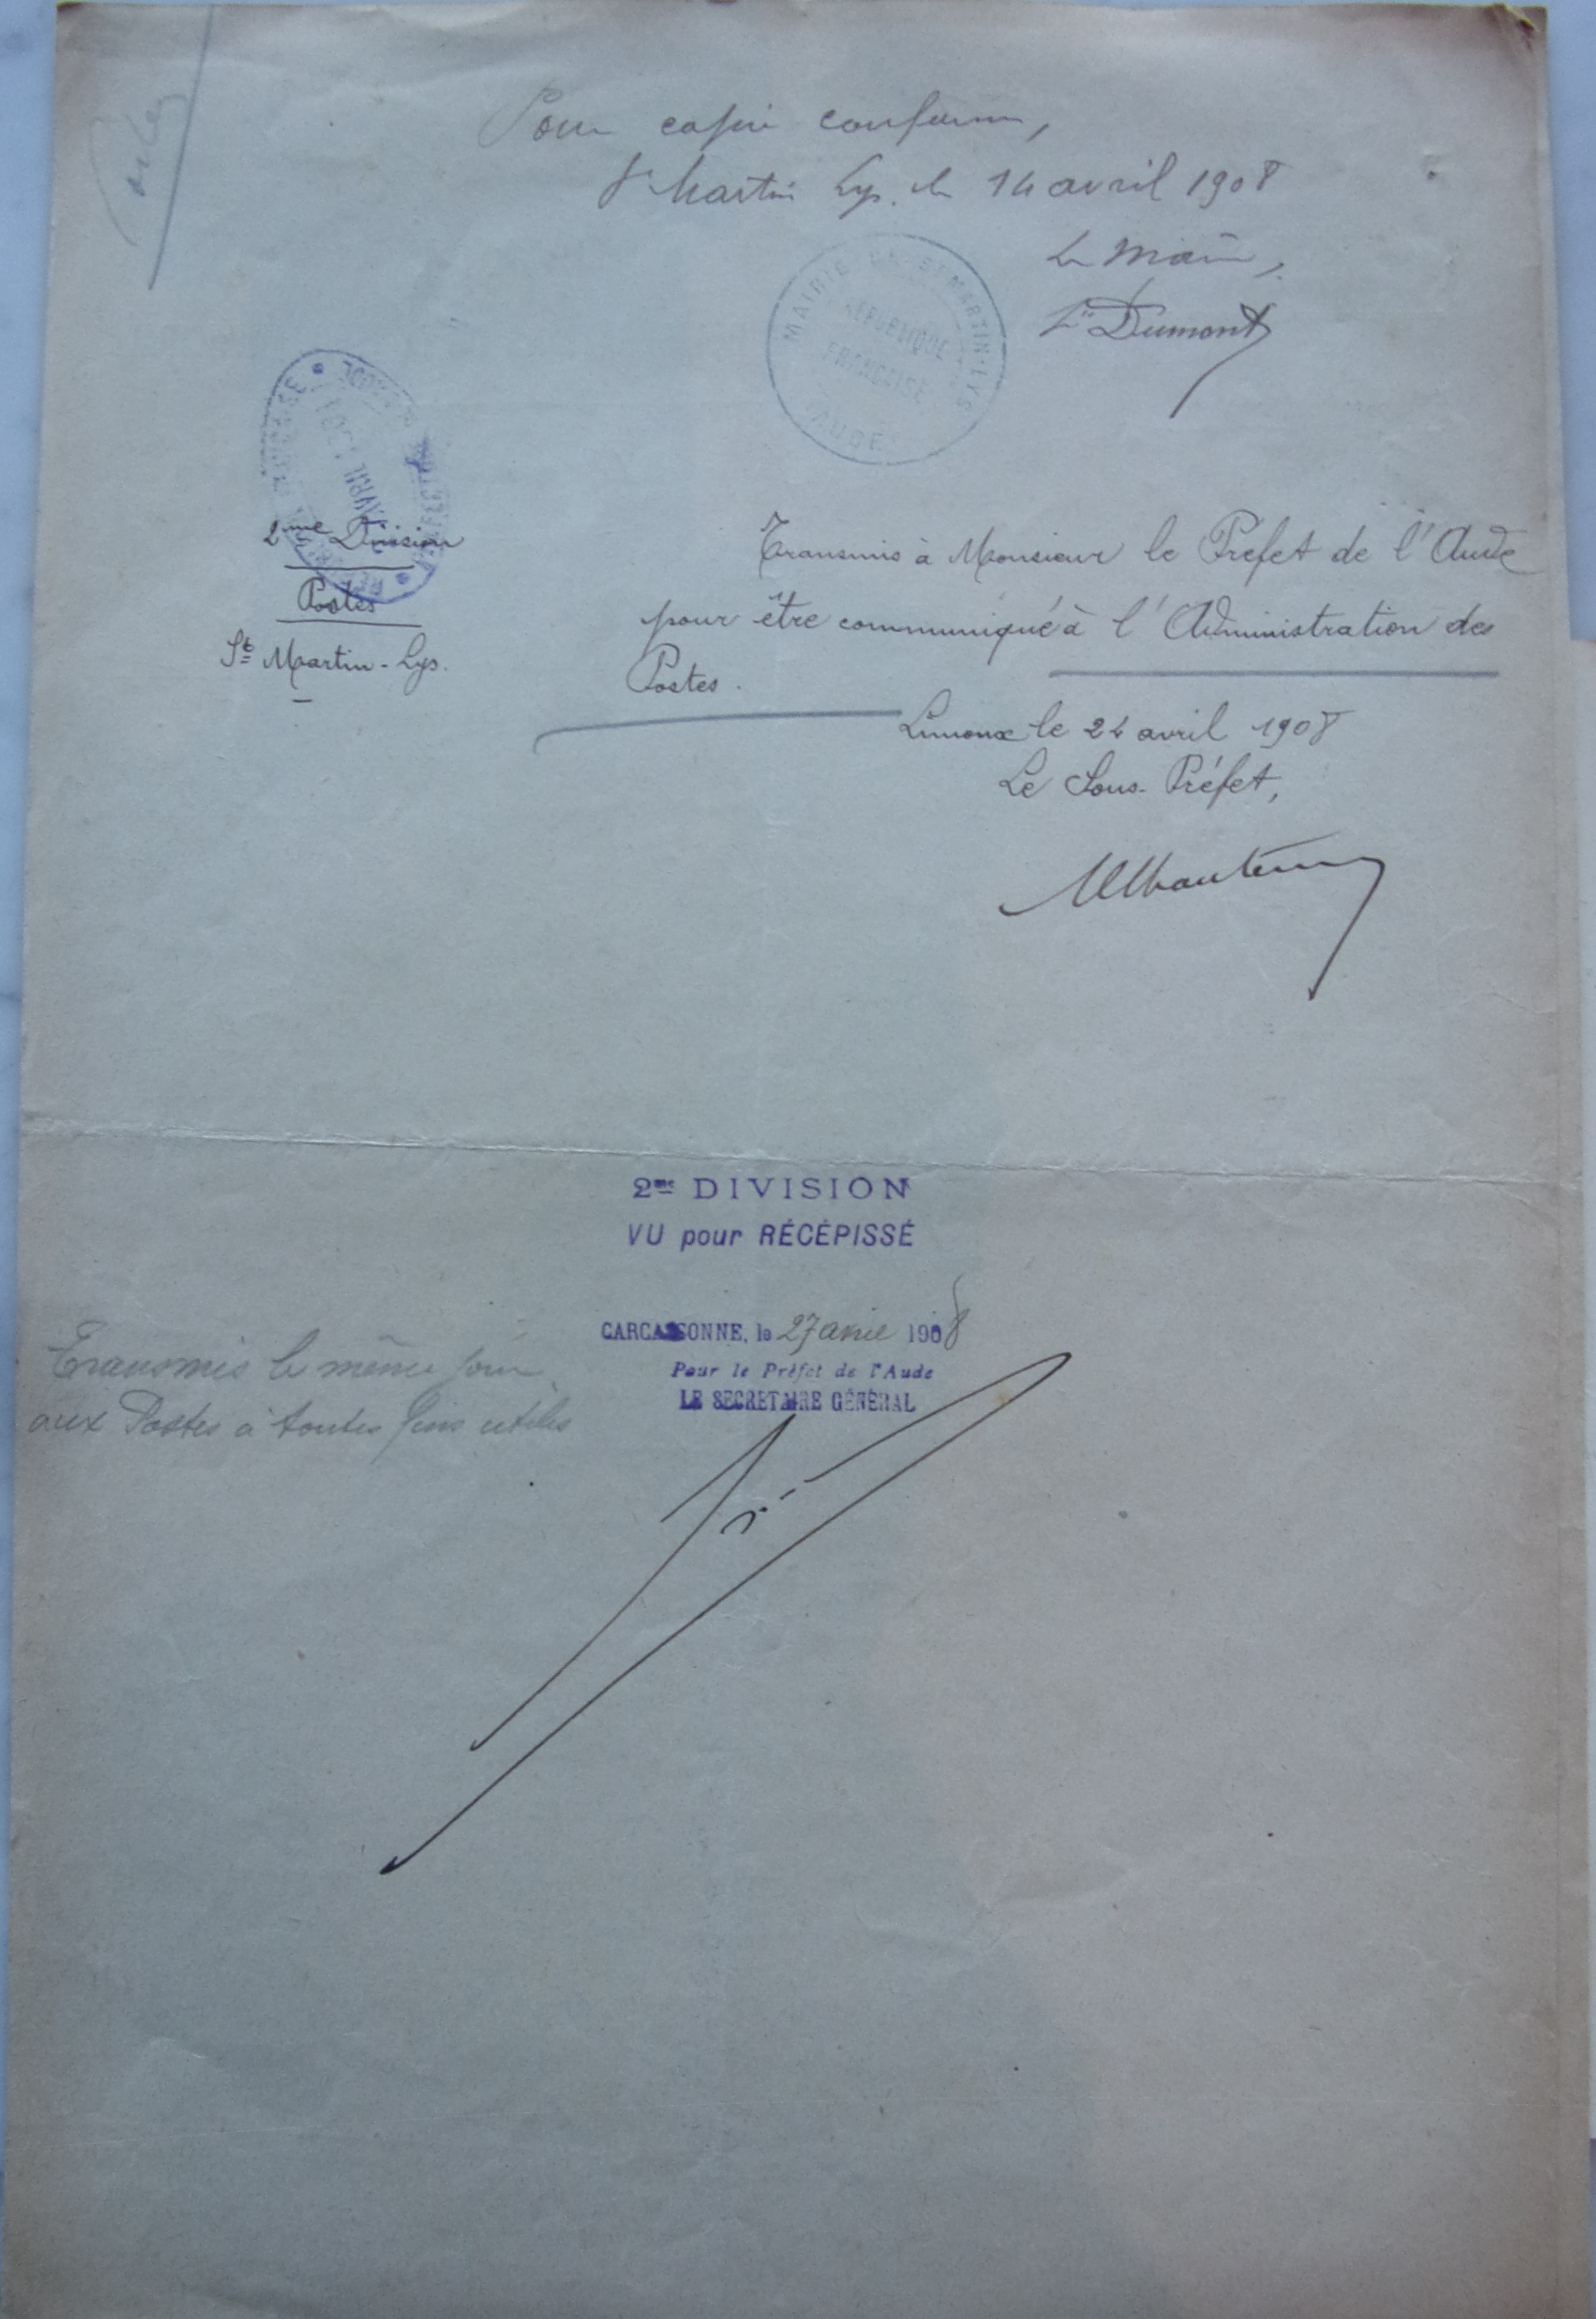 Postes
Pour copie conforme,
St Martin Lys. le 14 avril 1908
Le Maire,
Dumont
MAIRIE DE ST MARTIN-LYS
RÉPUBLIQUE
FRANÇAISE
AUDE
AVRIL
2me Division
Postes
St Martin-Lys.
Transmis à Monsieur le Préfet de l'Aude
pour être communiqué à l'Administration des
Postes.
Limoux le 22 avril 1908
Le Sous-Préfet,
2me DIVISION
VU pour RÉCÉPISSÉ
CARCASSONNE, le 27 avril 1908
Pour le Préfet de l'Aude
LE SECRETAIRE GÉNÉRAL
Transmis le même jour
aux Postes à toutes fins utiles